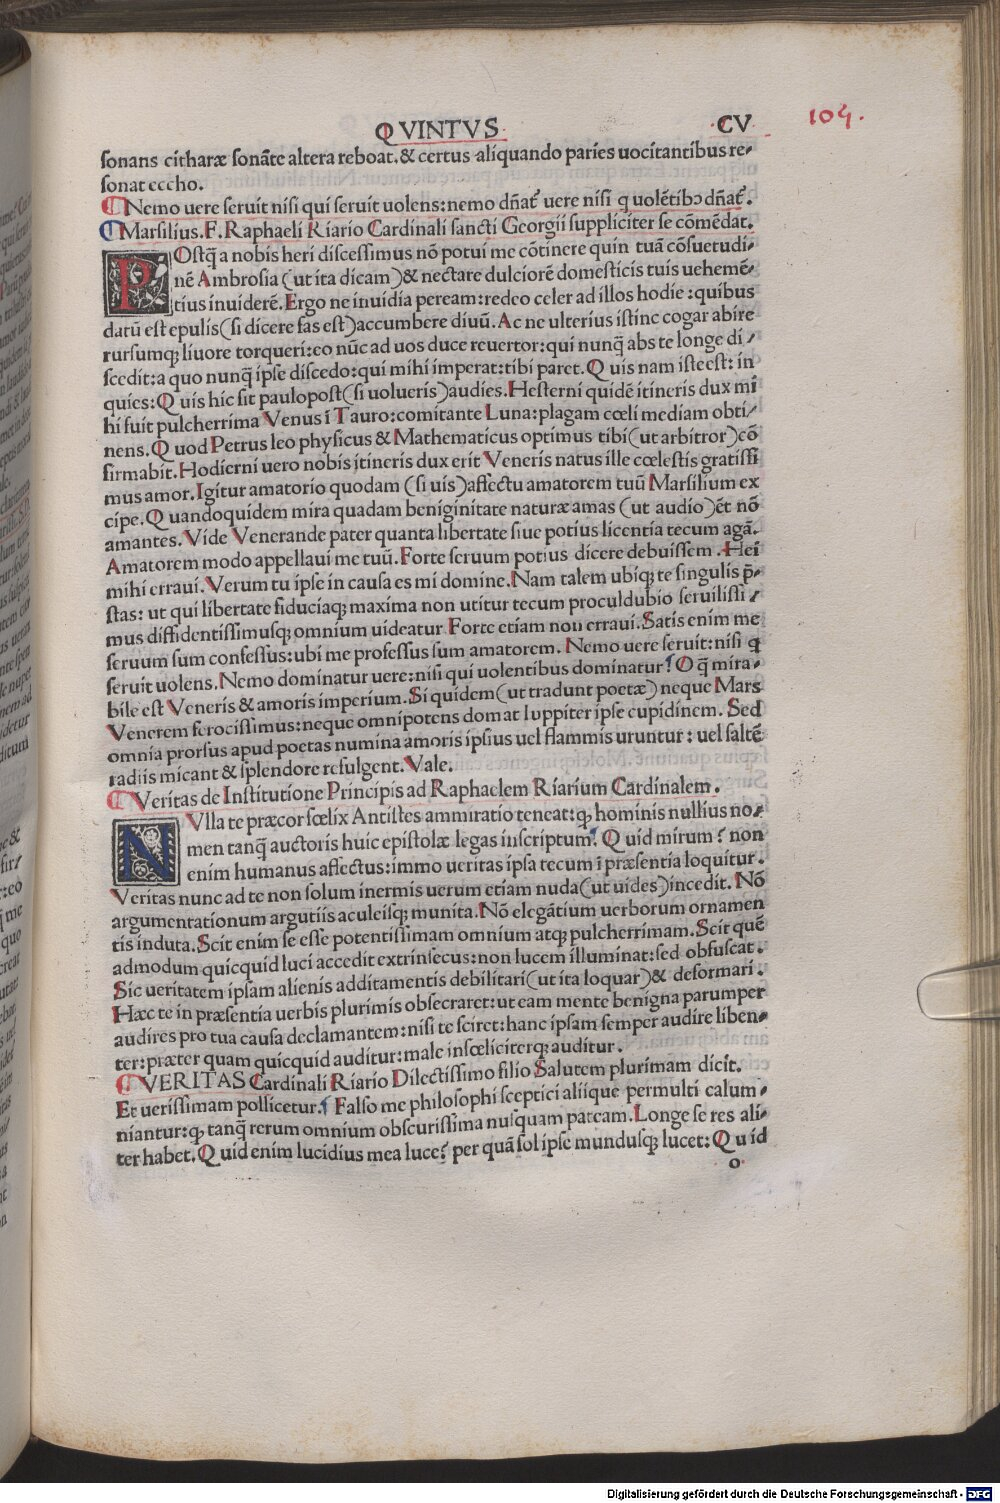 QVINTVS
CV
104.
sonans citharæ sonāte altera reboat. & certus aliquando paries uocitantibus re-
sonat eccho.
Nemo uere seruit nisi qui seruit uolens: nemo dn̄at᷑ uere nisi q uolētibꝰ dn̄at᷑.
Marsilius. F. Raphaeli Riario Cardinali sancti Georgii suppliciter se cōmēdat.
POstq̄ a nobis heri discessimus nō potui me cōtinere quin tuā cōsuetudi-
nē Ambrosia (ut ita dicam) & nectare dulciorē domesticis tuis uehemē-
tius inuiderē. Ergo ne inuidia peream: redeo celer ad illos hodie: quibus
datū est epulis (si dicere fas est) accumbere diuū. Ac ne ulterius istinc cogar abire
rursumq; liuore torqueri: eo nūc ad uos duce reuertor: qui nunq̄ abs te longe di-
scedit: a quo nunq̄ ipse discedo: qui mihi imperat: tibi paret. Quis nam iste est: in
quies: Quis hic sit paulopost (si uolueris) audies. Hesterni quidē itineris dux mi
hi fuit pulcherrima Venus ī Tauro: comitante Luna: plagam cœli mediam obti-
nens. Quod Petrus leo physicus & Mathematicus optimus tibi (ut arbitror) cō
firmabit. Hodierni uero nobis itineris dux erit Veneris natus ille cœlestis gratissi
mus amor. Igitur amatorio quodam (si uis) affectu amatorem tuū Marsilium ex
cipe. Quandoquidem mira quadam beniginitate naturæ amas (ut audio) ēt nō
amantes. Vide Venerande pater quanta libertate siue potius licentia tecum agā.
Amatorem modo appellaui me tuū. Forte seruum potius dicere debuissem. Hei
mihi erraui. Verum tu ipse in causa es mi domine. Nam talem ubiq; te singulis p̄-
stas: ut qui libertate fiduciaq; maxima non utitur tecum proculdubio seruilissi-
mus diffidentissimusq; omnium uideatur Forte etiam non erraui. Satis enim me
seruum sum confessus: ubi me professus sum amatorem. Nemo uere seruit: nisi q
seruit uolens. Nemo dominatur uere: nisi qui uolentibus dominatur? O q̄ mira-
bile est Veneris & amoris imperium. Si quidem (ut tradunt poetæ) neque Mars
Venerem ferocissimus: neque omnipotens domat Iuppiter ipse cupidinem. Sed
omnia prorsus apud poetas numina amoris ipsius uel flammis uruntur: uel saltē
radiis micant & splendore refulgent. Vale.
Veritas de Institutione Principis ad Raphaelem Riarium Cardinalem.
NVlla te præcor fœlix Antistes ammiratio teneat: q; hominis nullius no-
men tanq̄ auctoris huic epistolæ legas inscriptum? Quid mirum? non
enim humanus affectus: immo ueritas ipsa tecum ī præsentia loquitur.
Veritas nunc ad te non solum inermis uerum etiam nuda (ut uides) incedit. Nō
argumentationum argutiis aculeisq; munita. Nō elegātium uerborum ornamen
tis induta. Scit enim se esse potentissimam omnium atq; pulcherrimam. Scit quē
admodum quicquid luci accedit extrinsecus: non lucem illuminat: sed obfuscat.
Sic ueritatem ipsam alienis additamentis debilitari (ut ita loquar) & deformari.
Hæc te in præsentia uerbis plurimis obsecraret: ut eam mente benigna parumper
audires pro tua causa declamantem: nisi te sciret: hanc ipsam semper audire liben-
ter: præter quam quicquid auditur: male infœliciterq; auditur.
VERITAS Cardinali Riario Dilectissimo filio Salutem plurimam dicit.
Et uerissimam pollicetur. Falso me philosophi sceptici aliique permulti calum-
niantur: q; tanq̄ rerum omnium obscurissima nusquam pateam. Longe se res ali-
ter habet. Quid enim lucidius mea luce? per quā sol ipse mundusq; lucet: Quid
o
Digitalisierung gefördert durch die Deutsche Forschungsgemeinschaft - DFG